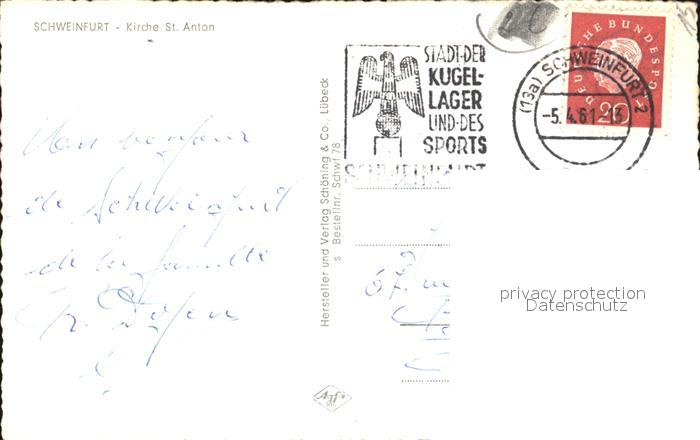 SCHWEINFURT - Kirche St. Anton
STADT·DER
KUGEL-
LAGER
UND·DES
SPORTS
SCHWEINFURT
(13a) SCHWEINFURT 2
-5.4.61-13
DEUTSCHE BUNDESPOST
20
Hersteller und Verlag Schöning & Co., Lübeck
s Bestellnr. Schwf 78
bonjour
de Schweinfurt
de la famille
67.
Agfa
privacy protection
Datenschutz